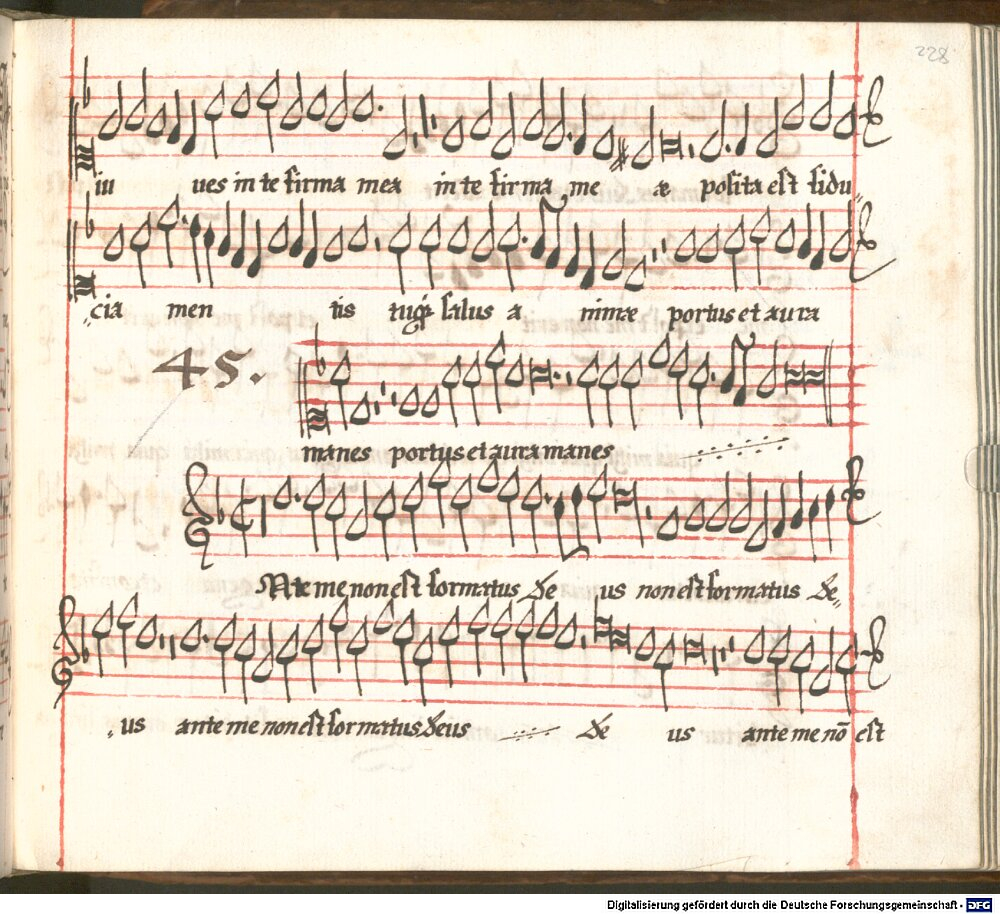 228
iu ues in te firma mea in te firma me æ posita est fidu„
„cia men tis salus a nimæ portus et aura
45.
manes portus et aura manes
Ante me non est formatus de us non est formatus de„
„us ante me non est formatus deus de us ante me nō est
Digitalisierung gefördert durch die Deutsche Forschungsgemeinschaft - DFG